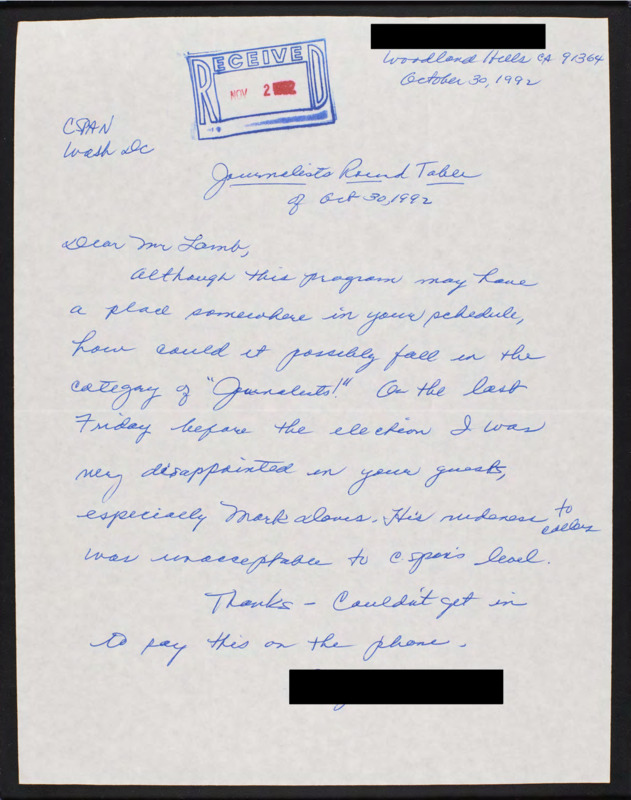 Woodland Hills CA 91364
October 30, 1992
RECEIVED
NOV 2 1992
CSPAN
Wash DC
Journalists Round Table
of Oct 30, 1992
Dear Mr Lamb,
Although this program may have
a place somewhere in your schedule,
how could it possibly fall in the
category of "Journalists!" On the last
Friday before the election I was
very disappointed in your guests,
especially Mark Davis. His rudeness to callers
was unacceptable to cspan's level.
Thanks - Couldn't get in
to say this on the phone.